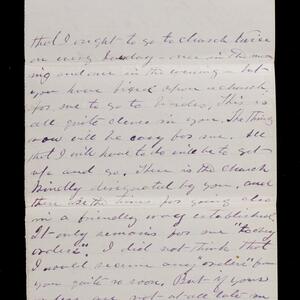 that I ought to go to church twice
on every Sunday - once in the mor
ning and once in the evening - but
you have fixed upon a church
for me to go to besides, this is
all quite clever in you. The thing
now will be easy for me. All
that I will have to do will be to get
up and go. There is the church
kindly designated by you, and
there are the times for going also
in a friendly way established
It only remains for me "to obey
orders". I did not think that
I would receive any "orders" from
you quite so soon. But if yours
are not at all late